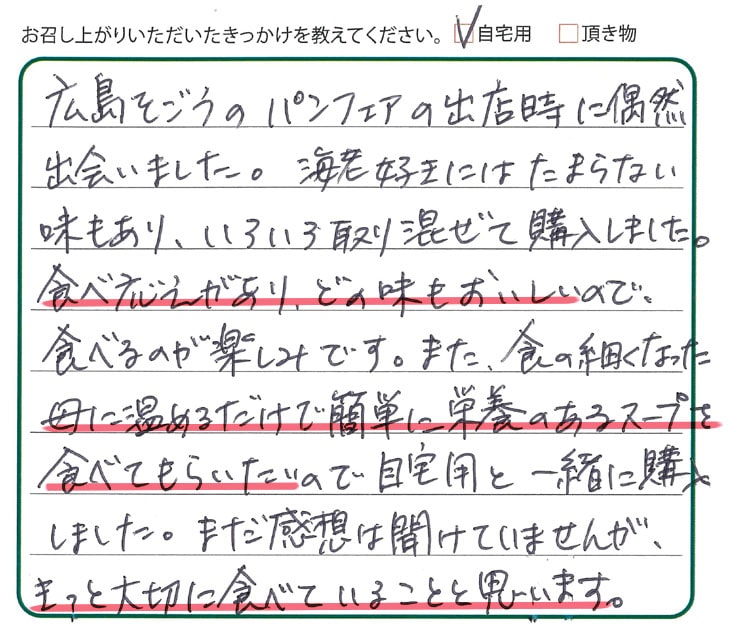 お召し上がりいただいたきっかけを教えてください。 自宅用 頂き物
広島そごうのパンフェアの出店時に偶然
出会いました。海老好きにはたまらない
味もあり、いろいろ取り混ぜて購入しました。
食べ応えがあり、どの味もおいしいので、
食べるのが楽しみです。また、食の細くなった
母に温めるだけで簡単に栄養のあるスープを
食べてもらいたいので自宅用と一緒に購入
しました。まだ感想は聞けていませんが、
きっと大切に食べていることと思います。